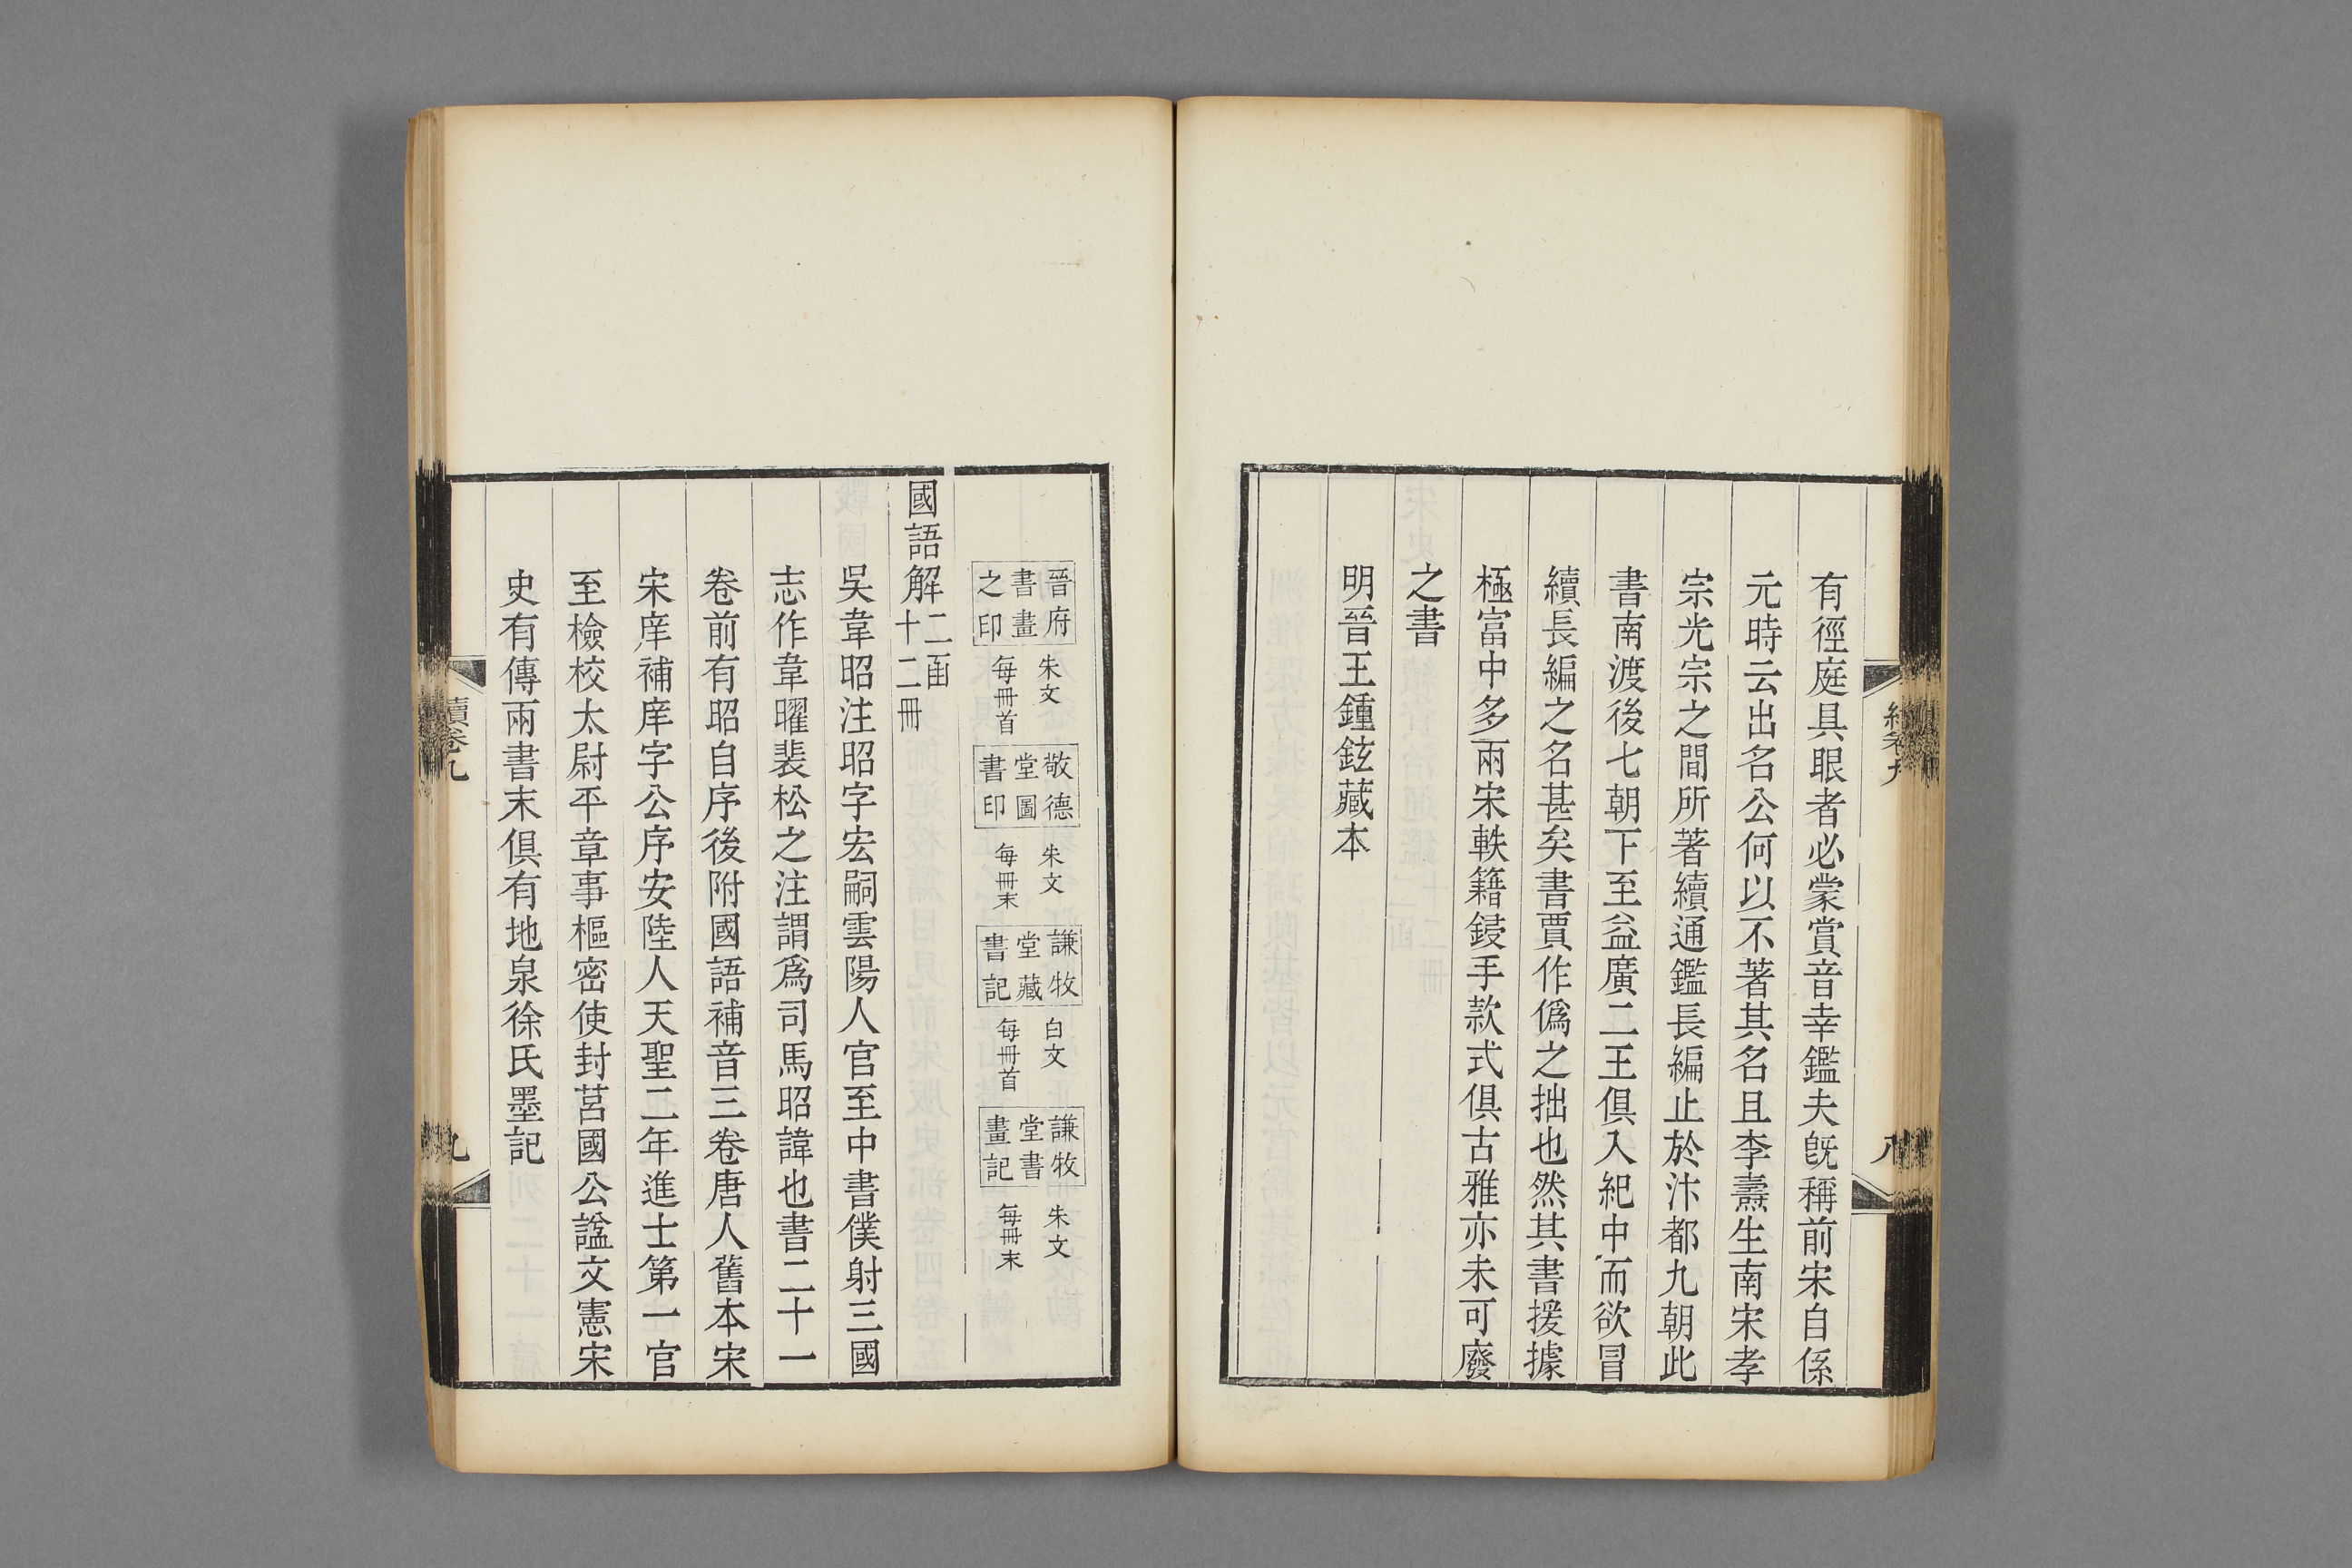 有徑庭具眼者必蒙賞音幸鑑夫旣稱前宋自係
元時云出名公何以不著其名且李燾生南宋孝
宗光宗之間所著續通鑑長編止於汴都九朝此
書南渡後七朝下至益廣二王俱入紀中而欲冒
續長編之名甚矣書賈作僞之拙也然其書援據
極富中多兩宋軼籍鋟手款式俱古雅亦未可廢
之書
明晉王鍾鉉藏本
晉府
書畫
之印
朱文
每冊首
敬德
堂圖
書印
朱文
每冊末
謙牧
堂藏
書記
白文
每冊首
謙牧
堂書
畫記
朱文
每冊末
國語解
二函
十二冊
吳韋昭注昭字宏嗣雲陽人官至中書僕射三國
志作韋曜裴松之注謂爲司馬昭諱也書二十一
卷前有昭自序後附國語補音三卷唐人舊本宋
宋庠補庠字公序安陸人天聖二年進士第一官
至檢校太尉平章事樞密使封莒國公諡文憲宋
史有傳兩書末俱有地泉徐氏墨記
續卷九
九